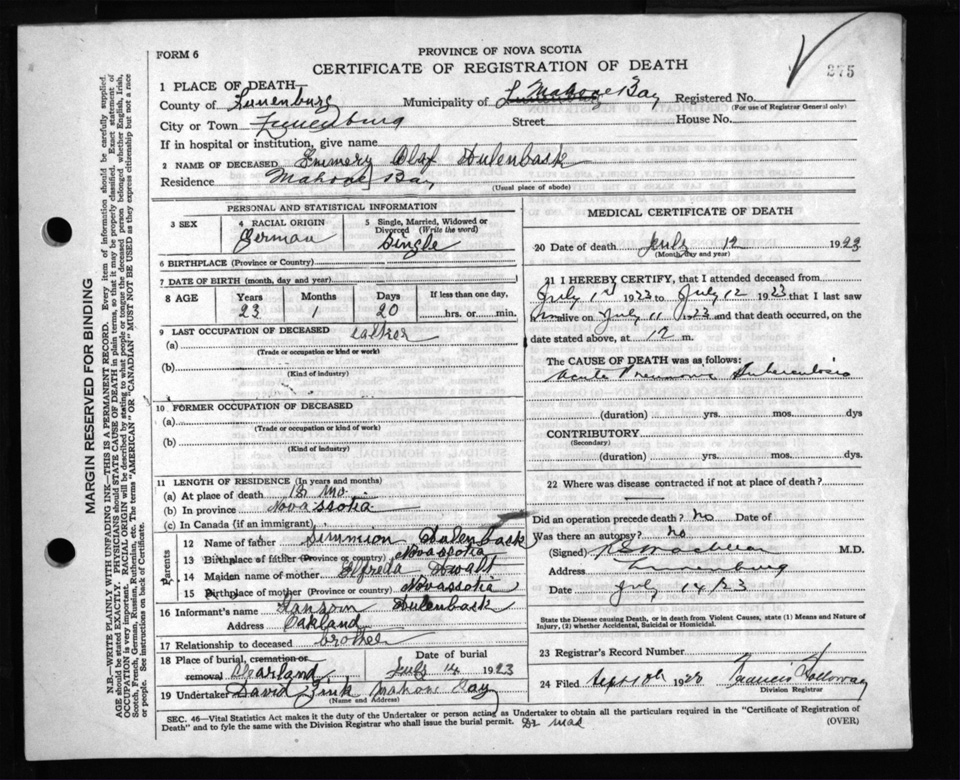 FORM 6
PROVINCE OF NOVA SCOTIA
CERTIFICATE OF REGISTRATION OF DEATH
375
1 PLACE OF DEATH
County of Lunenburg Municipality of Mahone Bay Registered No.
(For use of Registrar General only)
City or Town Lunenburg Street House No.
If in hospital or institution, give name
2 NAME OF DECEASED Emmery Olaf Hulenbask
Residence Mahone Bay
(Usual place of abode)
PERSONAL AND STATISTICAL INFORMATION
3 SEX
4 RACIAL ORIGIN
German
5 Single, Married, Widowed or Divorced (Write the word)
Single
6 BIRTHPLACE (Province or Country)
7 DATE OF BIRTH (month, day and year)
8 AGE Years Months Days If less than one day,
23 1 20 hrs. or min.
9 LAST OCCUPATION OF DECEASED
(a)
(Trade or occupation or kind or work)
(b)
(Kind of industry)
10 FORMER OCCUPATION OF DECEASED
(a)
(Trade or occupation or kind of work)
(b)
(Kind of industry)
11 LENGTH OF RESIDENCE (In years and months)
(a) At place of death mo.
(b) In province Novassotia
(c) In Canada (if an immigrant)
Parents
12 Name of father Simmion Hulenbask
13 Birthplace of father (Province or country) Novassotia
14 Maiden name of mother Elfreda
15 Birthplace of mother (Province or country) Novassotia
16 Informant's name Hulenbask
Address Oakland
17 Relationship to deceased brother
18 Place of burial, cremation or removal
Date of burial
July 14 1923
19 Undertaker David Zink Mahone Bay
(Name and Address)
MEDICAL CERTIFICATE OF DEATH
20 Date of death July 12 1923
(Month day and year)
21 I HEREBY CERTIFY, that I attended deceased from
July 1st 1923 to July 12 1923 that I last saw
alive on July 11 1923 and that death occurred, on
date stated above, at 12 m.
The CAUSE OF DEATH was as follows:
Acute Pneumonic Tuberculosis
(duration) yrs. mos. dys
CONTRIBUTORY
(Secondary)
(duration) yrs. mos. dys.
22 Where was disease contracted if not at place of death?
Did an operation precede death? no Date of
Was there an autopsy? no
(Signed) M.D.
Address Lunenburg
Date July 14/23
State the Disease causing Death, or in death from Violent Causes, state (1) Means and Nature of Injury, (2) whether Accidental, Suicidal or Homicidal.
23 Registrar's Record Number
24 Filed Sept 10th 1923 Francis
Division Registrar
SEC. 46—Vital Statistics Act makes it the duty of the Undertaker or person acting as Undertaker to obtain all the particulars required in the "Certificate of Registration of
Death" and to fyle the same with the Division Registrar who shall issue the burial permit. Dr Mac
(OVER)
MARGIN RESERVED FOR BINDING
N.B.—WRITE PLAINLY WITH UNFADING INK—THIS IS A PERMANENT RECORD. Every item of information should be carefully supplied.
AGE should be stated EXACTLY. PHYSICIANS should STATE CAUSE OF DEATH in plain terms, so that it may be properly classified. Exact statement of
OCCUPATION is very important. RACIAL ORIGIN will be described by stating to what people or tongue the deceased person belonged whether English, Irish,
Scotch, French, German, Russian, Ruthenian, etc. The terms "AMERICAN" or "CANADIAN" MUST NOT BE USED as they express citizenship but not a race
or people. See instructions on back of Certificate.